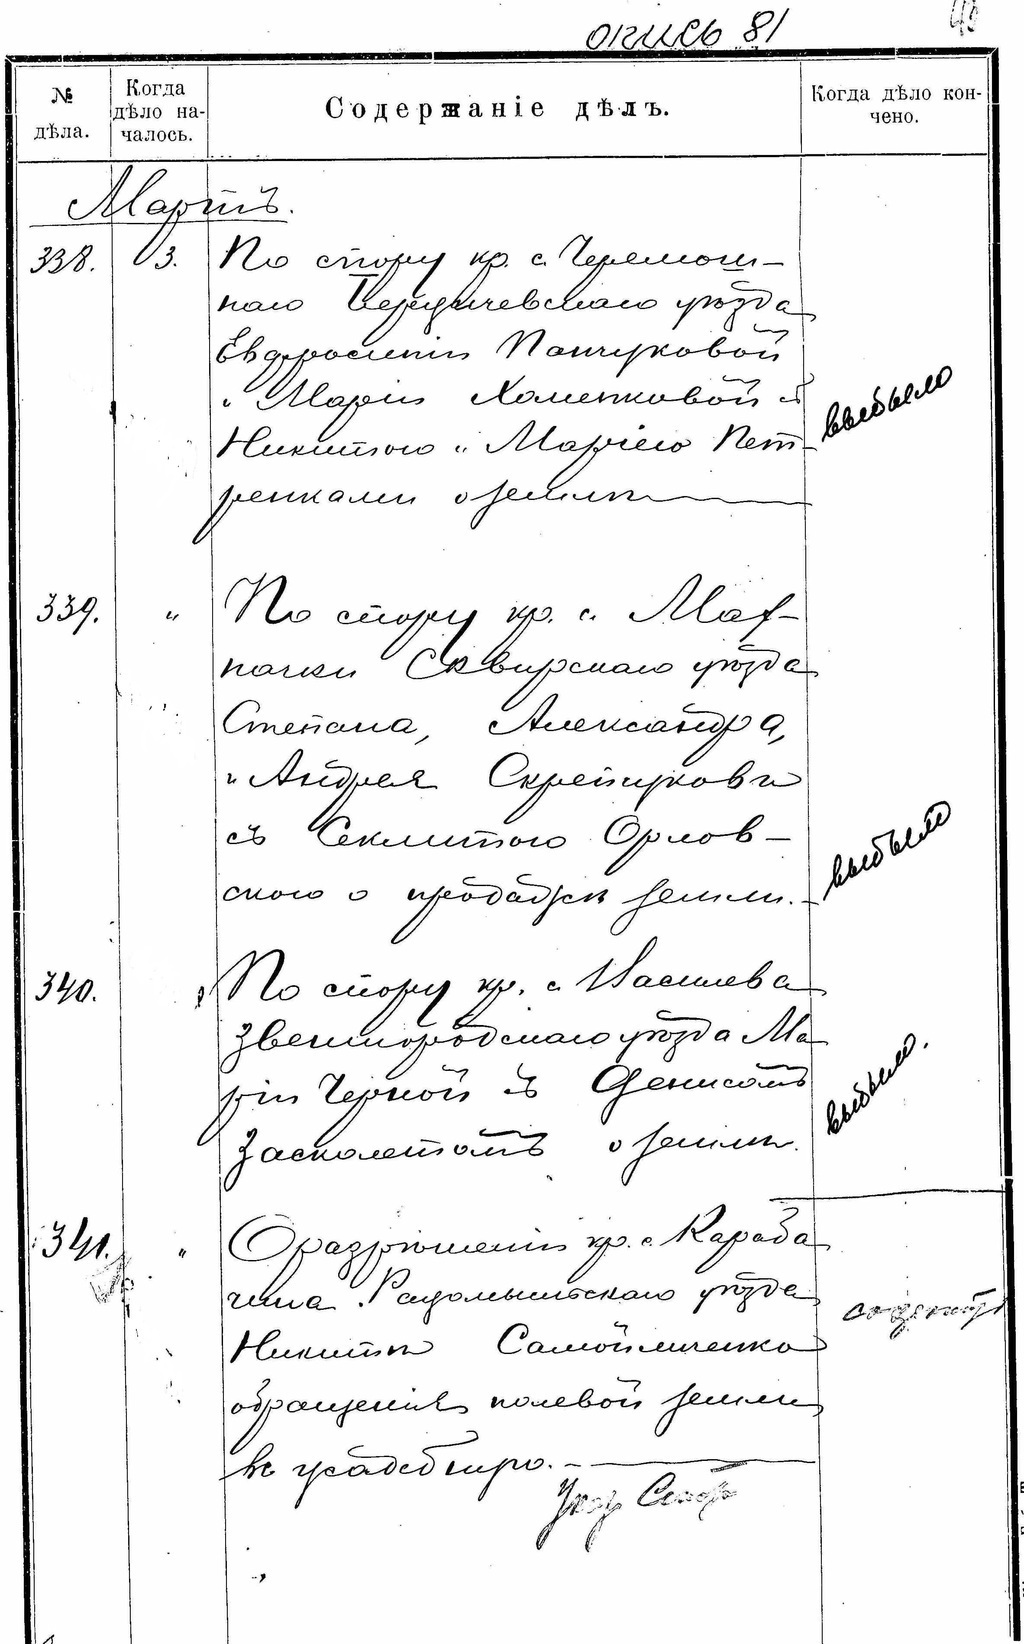 опись 81
№ дѣла.
Когда дѣло началось.
Содержаніе дѣлъ.
Когда дѣло кончено.
Мартъ.
338. 3. По спору кр. с. Черемош-
наго Бердичевскаго уѣзда
Евфросиніи Панчуковой
и Маріи Хоменковой съ
Никитою и Маріею Пет-
ренками о землѣ
выбыло
339. " По спору кр. с. Мах-
начки Сквирскаго уѣзда
Степана, Александра,
и Андрея Скрепчуковъ
съ Секлитою Орлов-
ского о продажѣ земли.
выбыло
340. По спору кр. с. Василева
Звенигородскаго уѣзда Ма
ріи Черной съ Денисомъ
Засколетомъ о землѣ.
выбыло.
341. " О разрѣшеніи кр. с. Караба
чина Радомысльскаго уѣзда
Никитѣ Самойленко
обращенія полевой земли
въ усадебную.
Указ